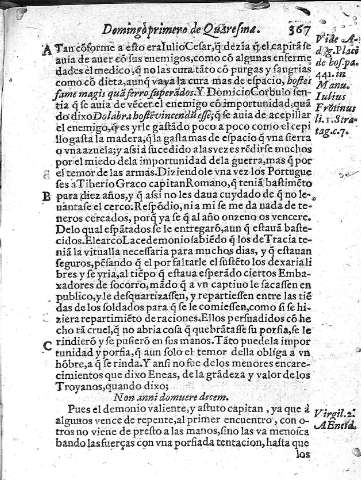 Domingo primero de Quaresma.
367
A
Tan cõforme a esto era Iulio Cesar, q̃ dezia q̃ el capitã se
auia de auer cõ sus enemigos, como cõ algunas enferme
dades el medico, q̃ no las cura tãto cõ purgas y sangrias
como cõ dieta, aunq̃ vaya la cura mas de espacio, hostes
fame magis quã ferro superados. Y Domicio Corbulo sen-
tia q̃ se auia de vẽcer el enemigo cõ importunidad, quã
do dixo Dolabra hostẽ vincendũ esse; q̃ se auia de acepillar
el enemigo, q̃ es yrle gastãdo poco a poco como el cepi
llo gasta la madera, q̃ la gasta mas de espacio q̃ vna sierra
o vna azuela; y assi à sucedido a las vezes rẽdirse muchos
por el miedo dela importunidad dela guerra, mas q̃ por
el temor de las armas. Diziendole vna vez los Portugue
ses a Tiberio Graco capitan Romano, q̃ teniã bastimẽto
B
para diez años, y q̃ assi no les daua cuydado de q̃ no le-
uantase el cerco. Respõdio, ni a mi se me da nada de te-
neros cercados, porq̃ ya se q̃ al año onzeno os vencere.
Delo qual espãtados se le entregarõ, aun q̃ estauã baste-
cidos. Elearco Lacedemonio sabiẽdo q̃ los de Tracia te-
niã la vitualla necessaria para muchos dias, y q̃ estauan
seguros, pẽsando q̃ el por faltarle el sustẽto los dexaria li
bres y se yria, al tiẽpo q̃ estaua esperãdo ciertos Emba-
xadores de socorro, mãdó q̃ a vn captiuo le sacassen en
publico, y le desquartizassen, y repartiessen entre las tiẽ
das de los soldados para q̃ se le comiessen, como si se hi-
ziera repartimiẽto de raciones. Ellos persuadidos cõ he
cho tã cruel, q̃ no abria cosa q̃ quebrãtase su porfia, se le
C
rindierõ y se pusierõ en sus manos. Tãto puede la impor
tunidad y porfia, q̃ aun solo el temor della obliga a vn
hõbre, a q̃ se rinda. Y ansi no fue de los menores encare-
cimientos que dixo Eneas, de la grãdeza y valor de los
Troyanos, quando dixo;
Non anni domuere decem.
Pues el demonio valiente, y astuto capitan, ya que à
algunos vence de repente, al primer encuentro, con o-
tros no viene de presto a las manos, sino las va menosca
bando las fuerças con vna porfiada tentacion, hasta que
los
Vide A-
441. in
Manu.
Iulius
Frõtinus
li. 1. Stra-
tag. c. 7.
Virgil. 2.
AEneid.